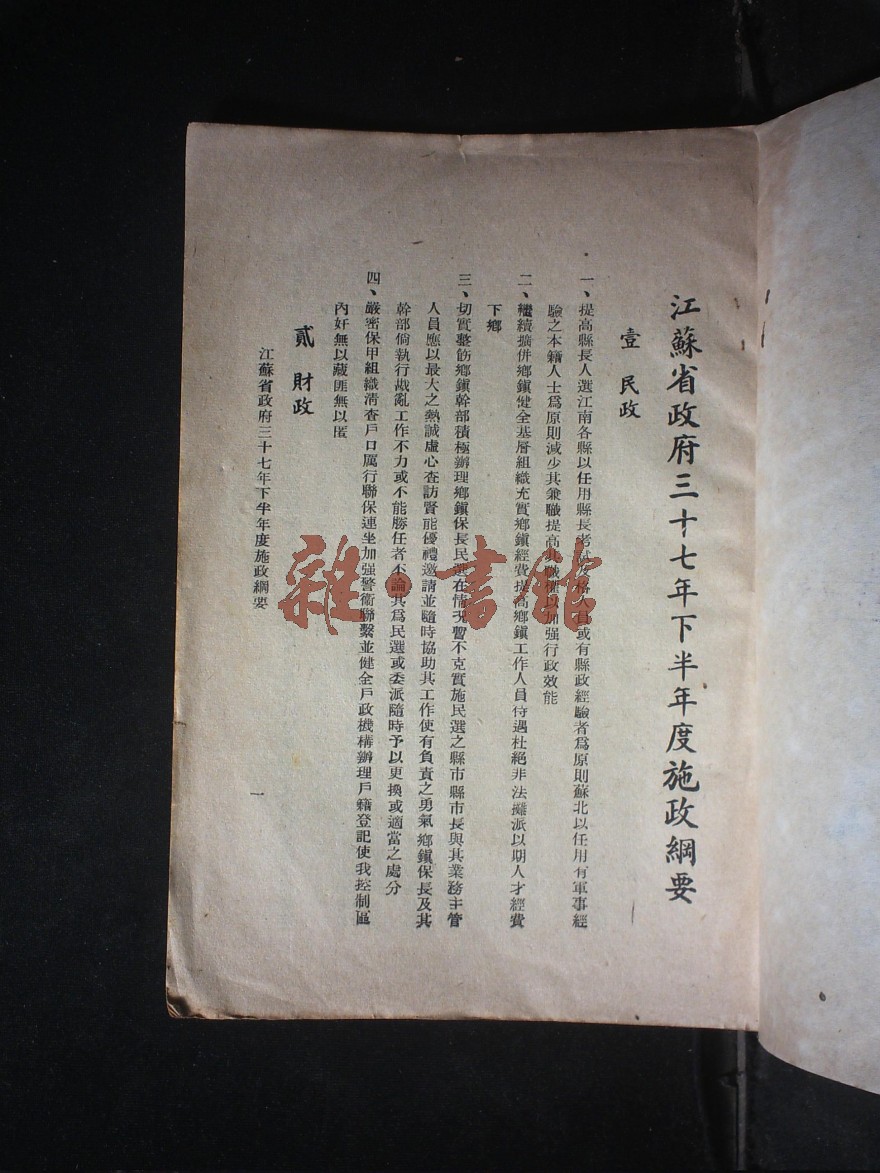 江蘇省政府三十七年下半年度施政綱要
壹 民政
一、提高縣長人選江南各縣以任用縣長考試及格人員或有縣政經驗者爲原則蘇北以任用有軍事經
驗之本籍人士爲原則減少其兼職提高其職權以加强行政效能
二、繼續擴併鄉鎭健全基層組織充實鄉鎭經費提高鄉鎭工作人員待遇杜絕非法攤派以期人才經費
下鄉
三、切實整飭鄉鎭幹部積極辦理鄉鎭保長民選在情況暫不克實施民選之縣市縣市長與其業務主管
人員應以最大之熱誠虛心查訪賢能優禮邀請並隨時協助其工作使有負責之勇氣鄉鎭保長及其
幹部倘執行戡亂工作不力或不能勝任者不論其爲民選或委派隨時予以更換或適當之處分
四、嚴密保甲組織淸查戶口厲行聯保連坐加强警衞聯繫並健全戶政機構辦理戶籍登記使我控制區
內奸無以藏匪無以匿
貳 財政
江蘇省政府三十七年下半年度施政綱要
一
雜·書館